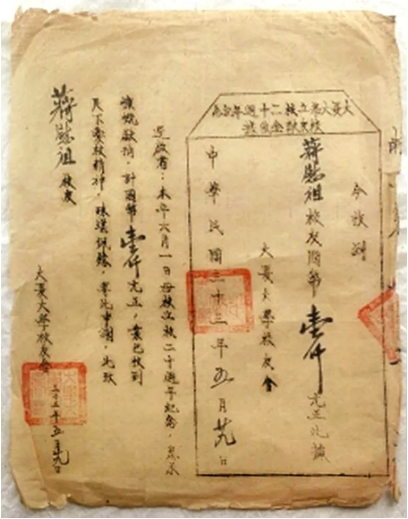 大夏大學立校二十週年紀念
校友獻金收據
今收到
蔣慰祖校友國幣壹仟元正此據
大夏大學校友會
中華民國三十三年五月廿九日
逕啟者：本年六月一日母校立校二十週年紀念，辱承
慷慨獻捐，計國幣壹仟元正，業已收到，
下愛校精神，殊堪，專此申謝，此致
蔣慰祖校友
大夏大學校友會
三十三年五月廿九日